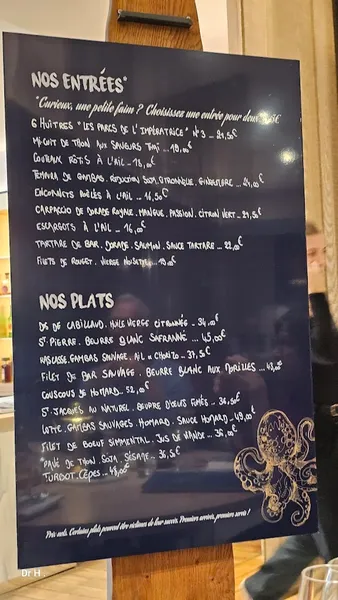 NOS ENTRÉES*
*Curieux, une petite faim ? Choisissez une entrée pour deux 5€
6 HUÎTRES "LES PARCS DE L'IMPÉRATRICE" N°3 - 21,50€
MI-CUIT DE THON AUX SAVEURS THAÏ - 19,00€
COUTEAUX RÔTIS À L'AIL - 19,00€
TEMPURA DE GAMBAS, RÉDUCTION SOJA, CITRONNADE, GINGEMBRE ... 24,00€
ENCORNETS POÊLÉS À L'AIL - 16,50€
CARPACCIO DE DORADE ROYALE, MANGUE, PASSION, CITRON VERT - 21,5€
ESCARGOTS À L'AIL - 16,00€
TARTARE DE BAR, DORADE, SAUMON, SAUCE TARTARE ... 22,00€
FILETS DE ROUGET, VIERGE NOISETTE - 19,00€
NOS PLATS
DOS DE CABILLAUD, HUILE VIERGE CITRONNÉE - 34,00€
ST-PIERRE, BEURRE BLANC SAFRANÉ ... 45,00€
RASCASSE, GAMBAS SAUVAGE, AIL & CHORIZO - 37,5€
FILET DE BAR SAUVAGE, BEURRE BLANC AUX MORILLES ... 43,00€
COUSCOUS DE HOMARD - 52,00€
ST JACQUES AU NATUREL, BEURRE D'OEUFS FUMÉS - 36,50€
LOTTE, GAMBAS SAUVAGES, HOMARD, SAUCE HOMARD - 49,00€
FILET DE BOEUF SIMMENTAL, JUS DE VIANDE - 36,00€
PAVÉ DE THON, SOJA, SÉSAME - 36,5€
TURBOT, CÈPES - 48,00€
Prix nets. Certains plats peuvent être victimes de leur succès. Premiers arrivés, premiers servis !
Dr H